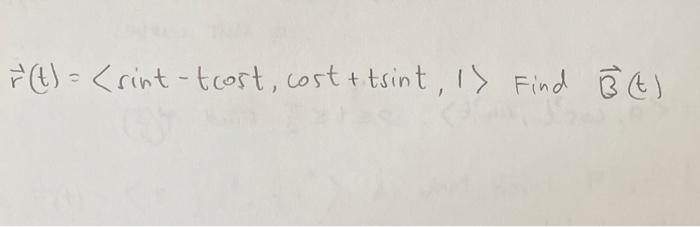 r⃗(t) = <sint - tcost, cost + tsint, 1> Find B⃗(t)